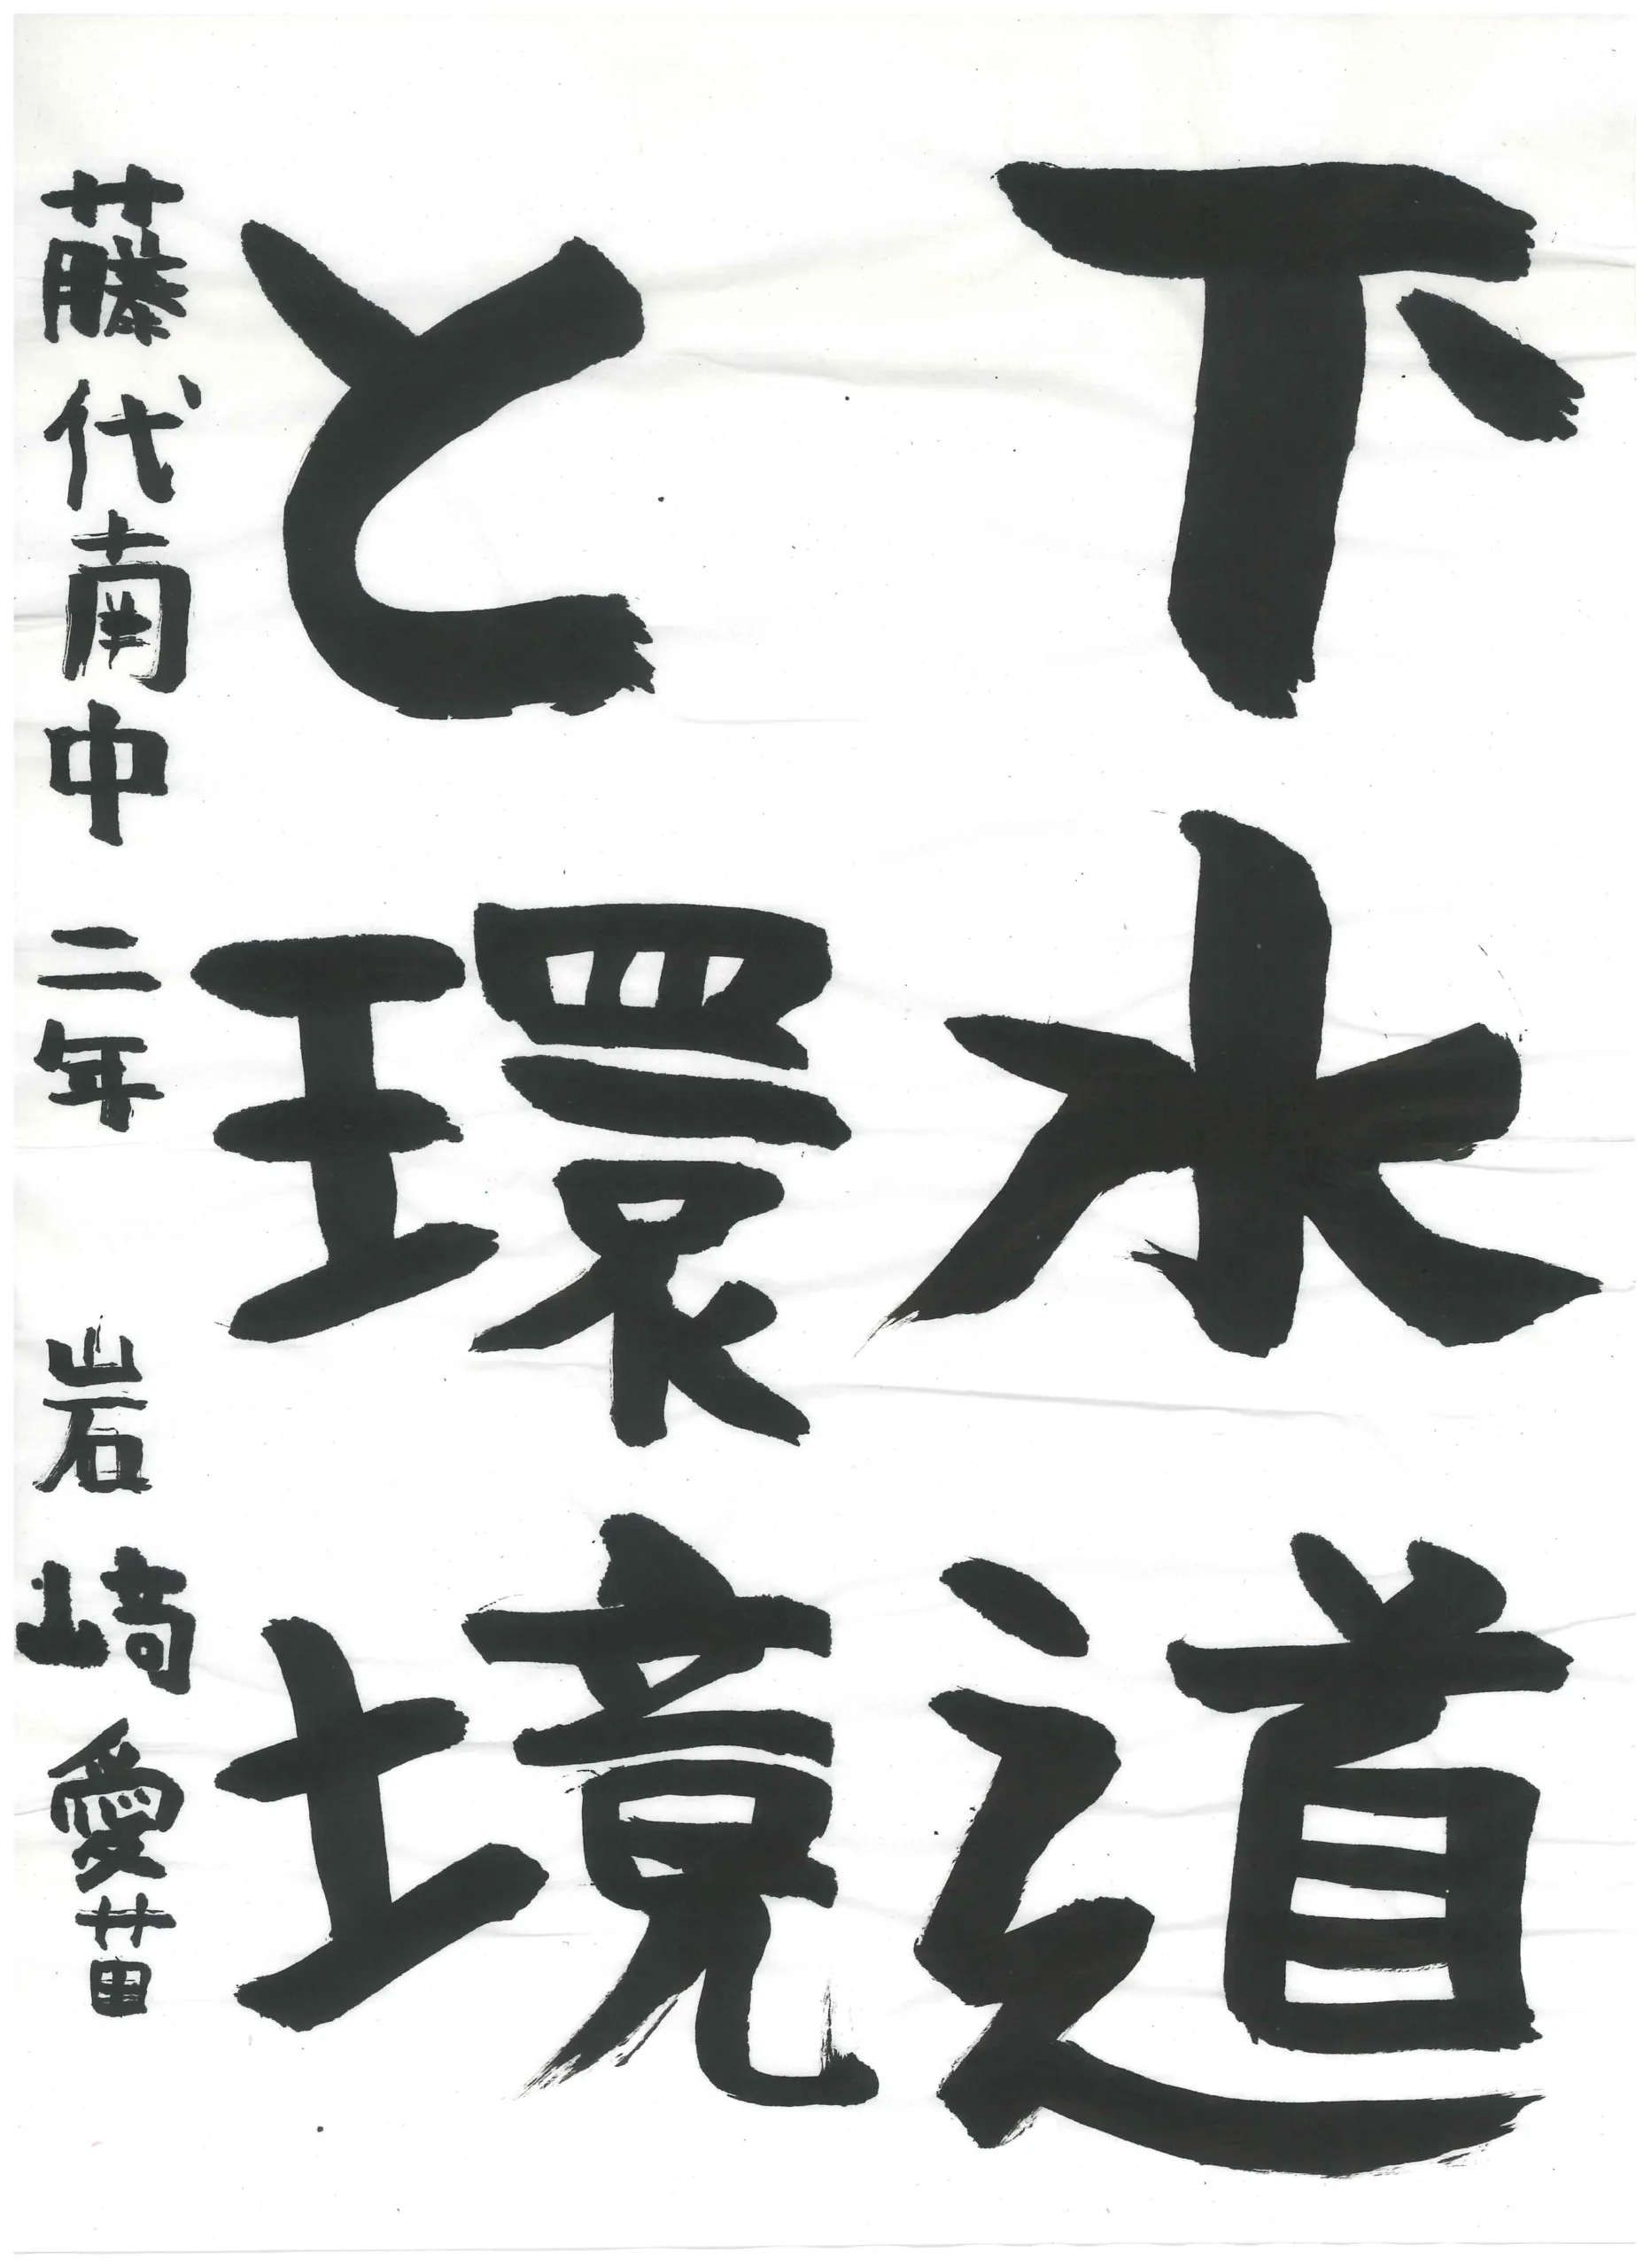 下水道
と環境
藤代南中 二年 岩崎愛苗